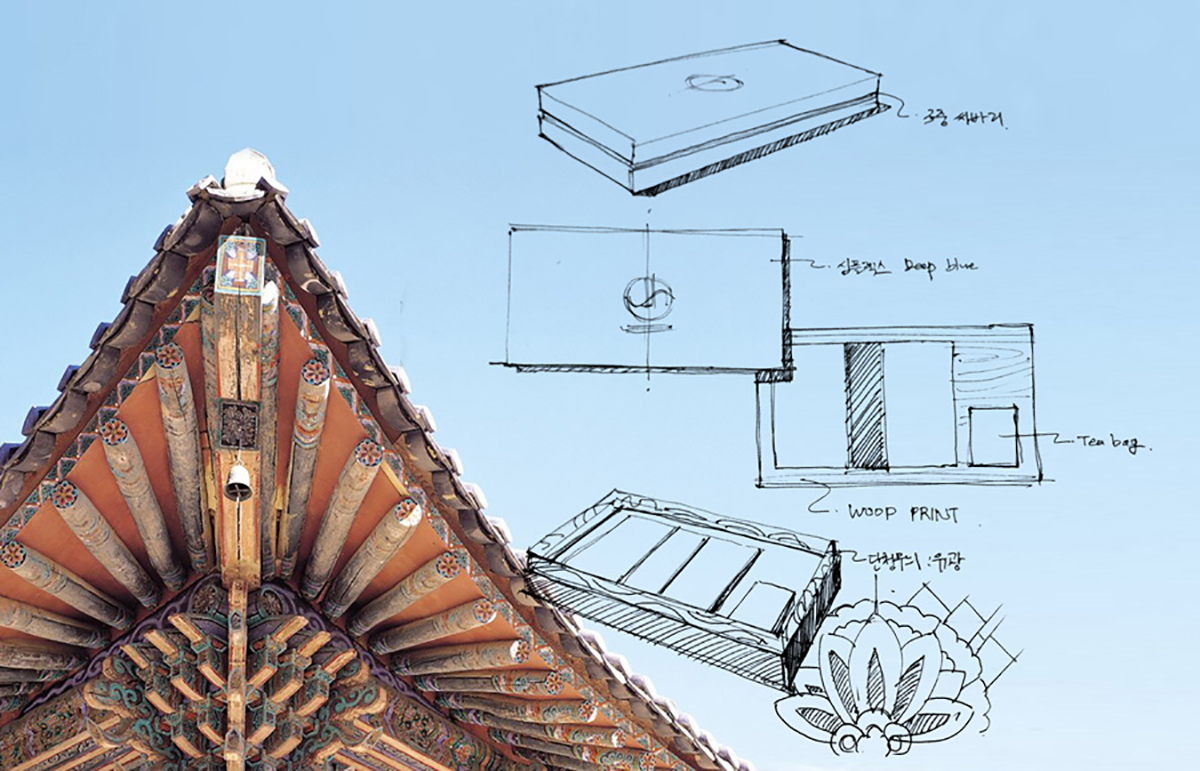 3중 싸바리.
심플렉스 Deep blue
Tea bag.
WOOD PRINT
단청무늬 : 유광